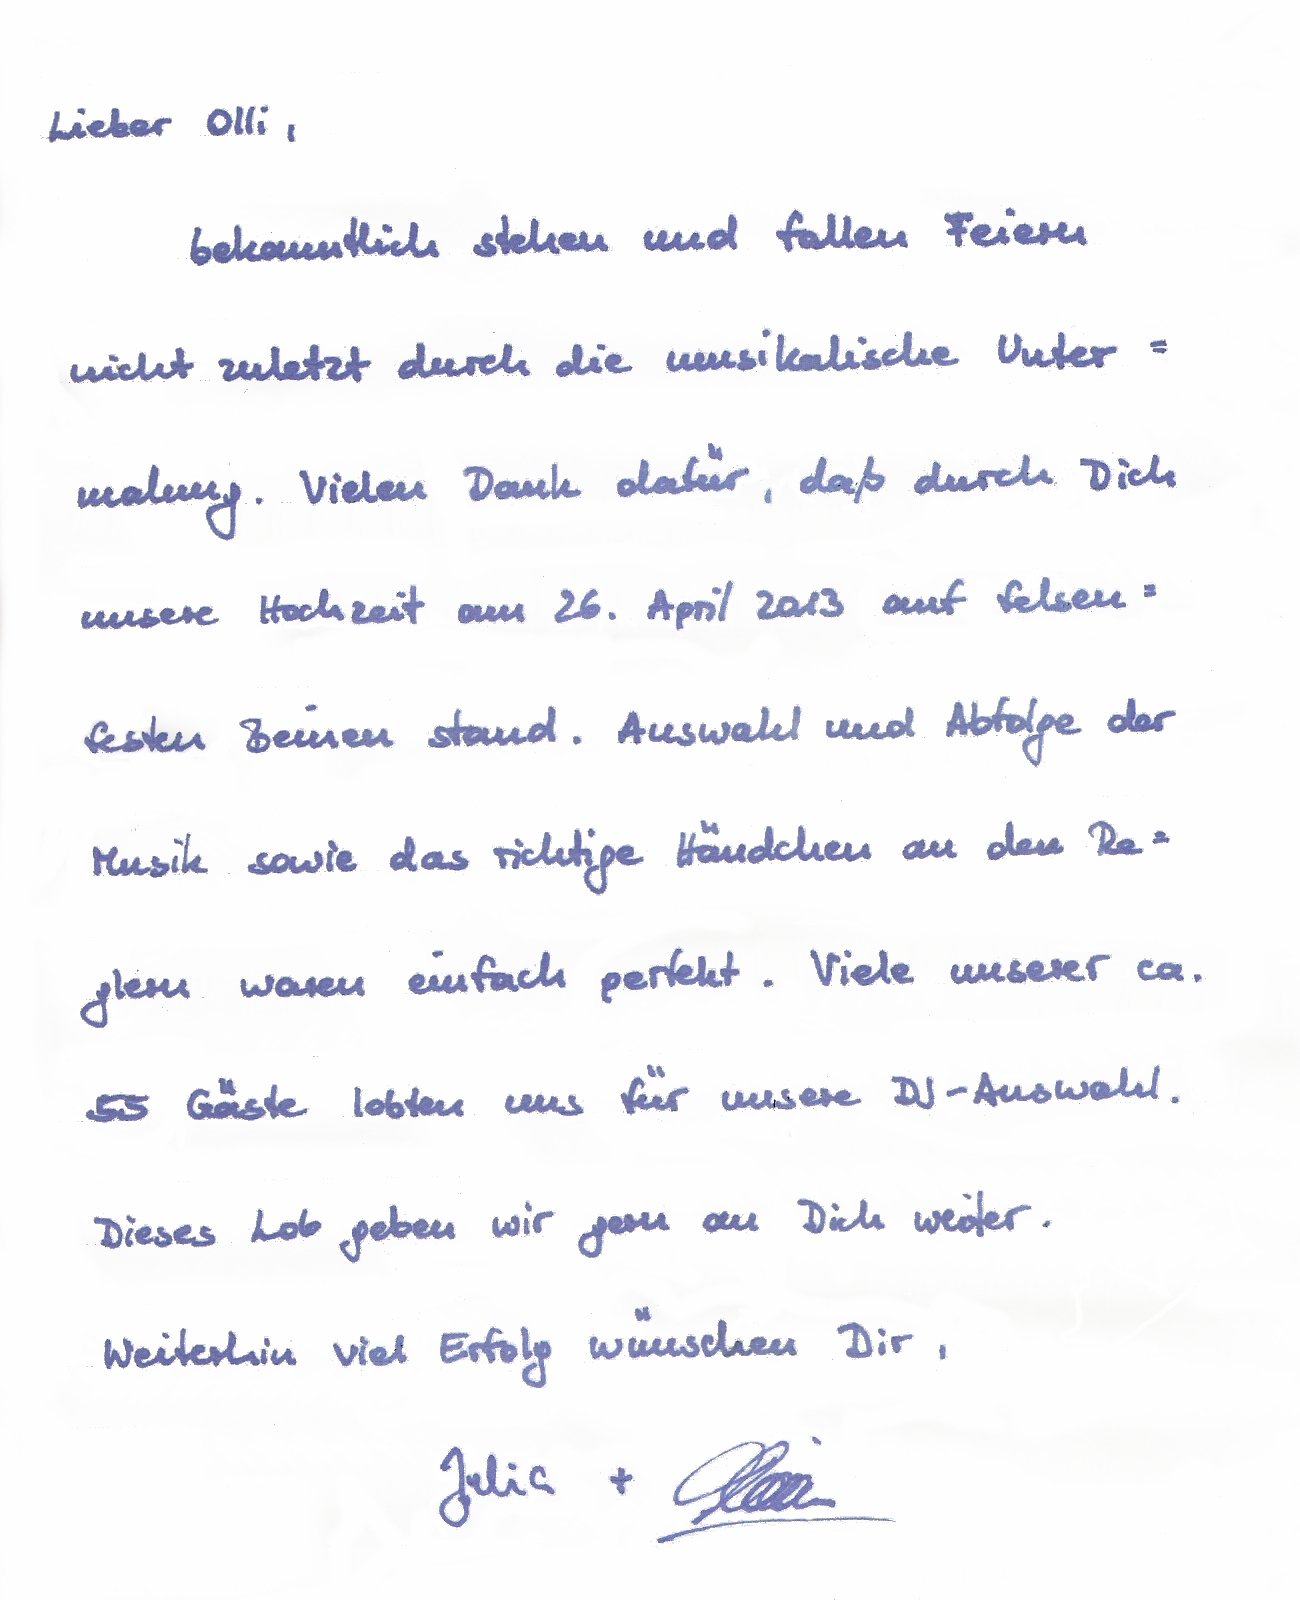 Lieber Olli,
bekanntlich stehen und fallen Feiern
nicht zuletzt durch die musikalische Unter=
malung. Vielen Dank dafür, daß durch Dich
unsere Hochzeit am 26. April 2013 auf felsen=
festen Beinen stand. Auswahl und Abfolge der
Musik sowie das richtige Händchen an den Re=
glern waren einfach perfekt. Viele unserer ca.
55 Gäste lobten uns für unsere DJ-Auswahl.
Dieses Lob geben wir gern an Dich weiter.
Weiterhin viel Erfolg wünschen Dir,
Julia +